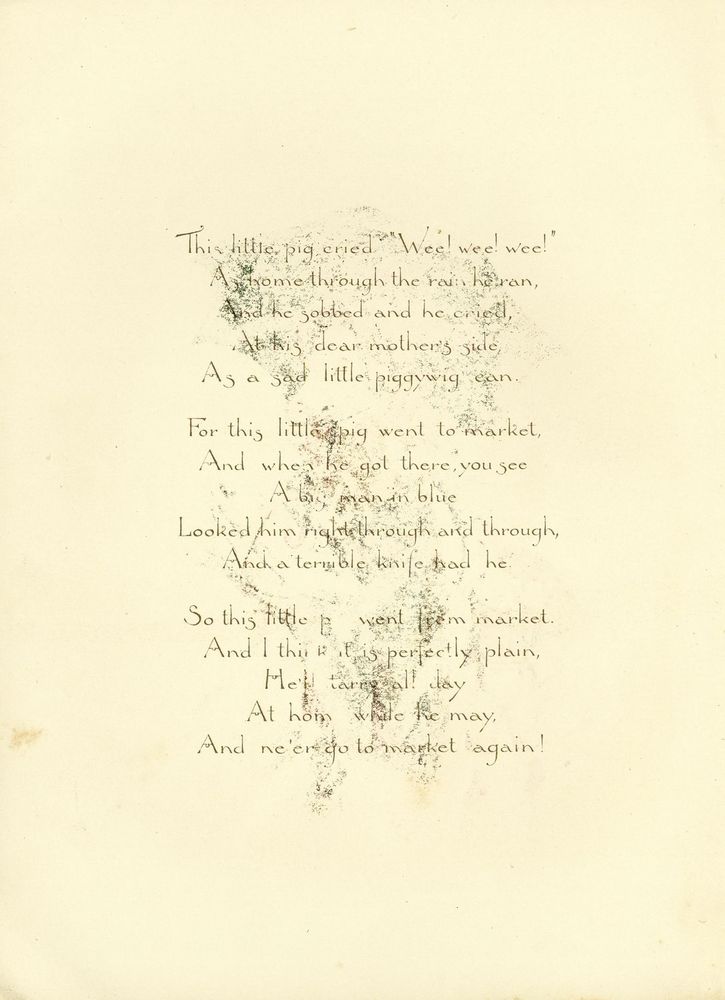 This little pig cried "Wee! wee! wee!"
As home through the rain he ran,
And he sobbed and he cried,
At his dear mother's side,
As a sad little piggywig can.
For this little pig went to market,
And when he got there, you see
A big man in blue
Looked him right through and through,
And a terrible knife had he.
So this little p went from market.
And I think it is perfectly plain,
He'll tarry all day
At hom while he may,
And ne'er go to market again!